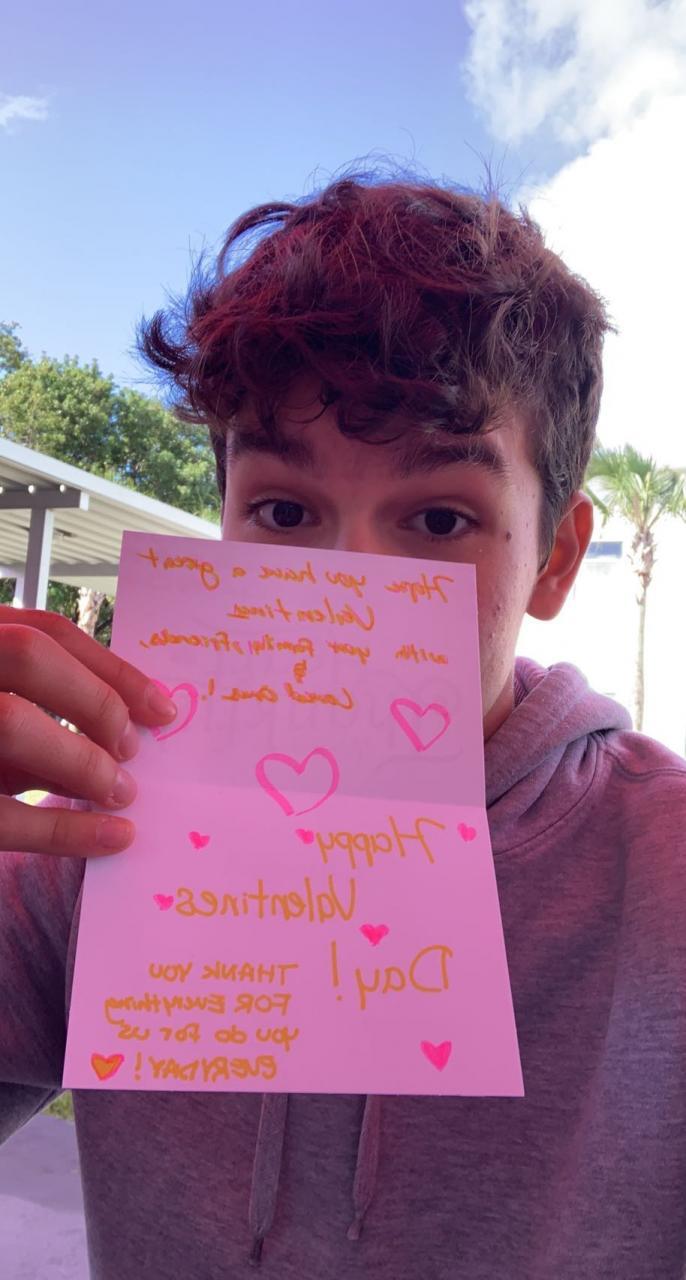 Hope you have a great
Valentines
with your family, friends,
&
Loved ones!
Happy
Valentines
Day!
THANK YOU
FOR Everything
you do for us
EVERYDAY!